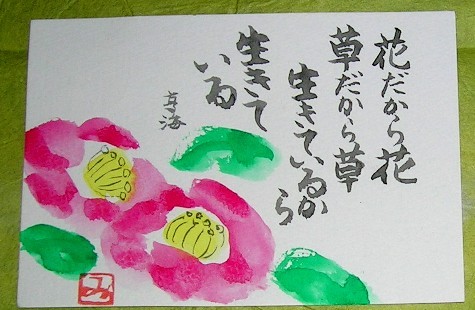 花だから花
草だから草
生きているから
生きて
いる
真海
み